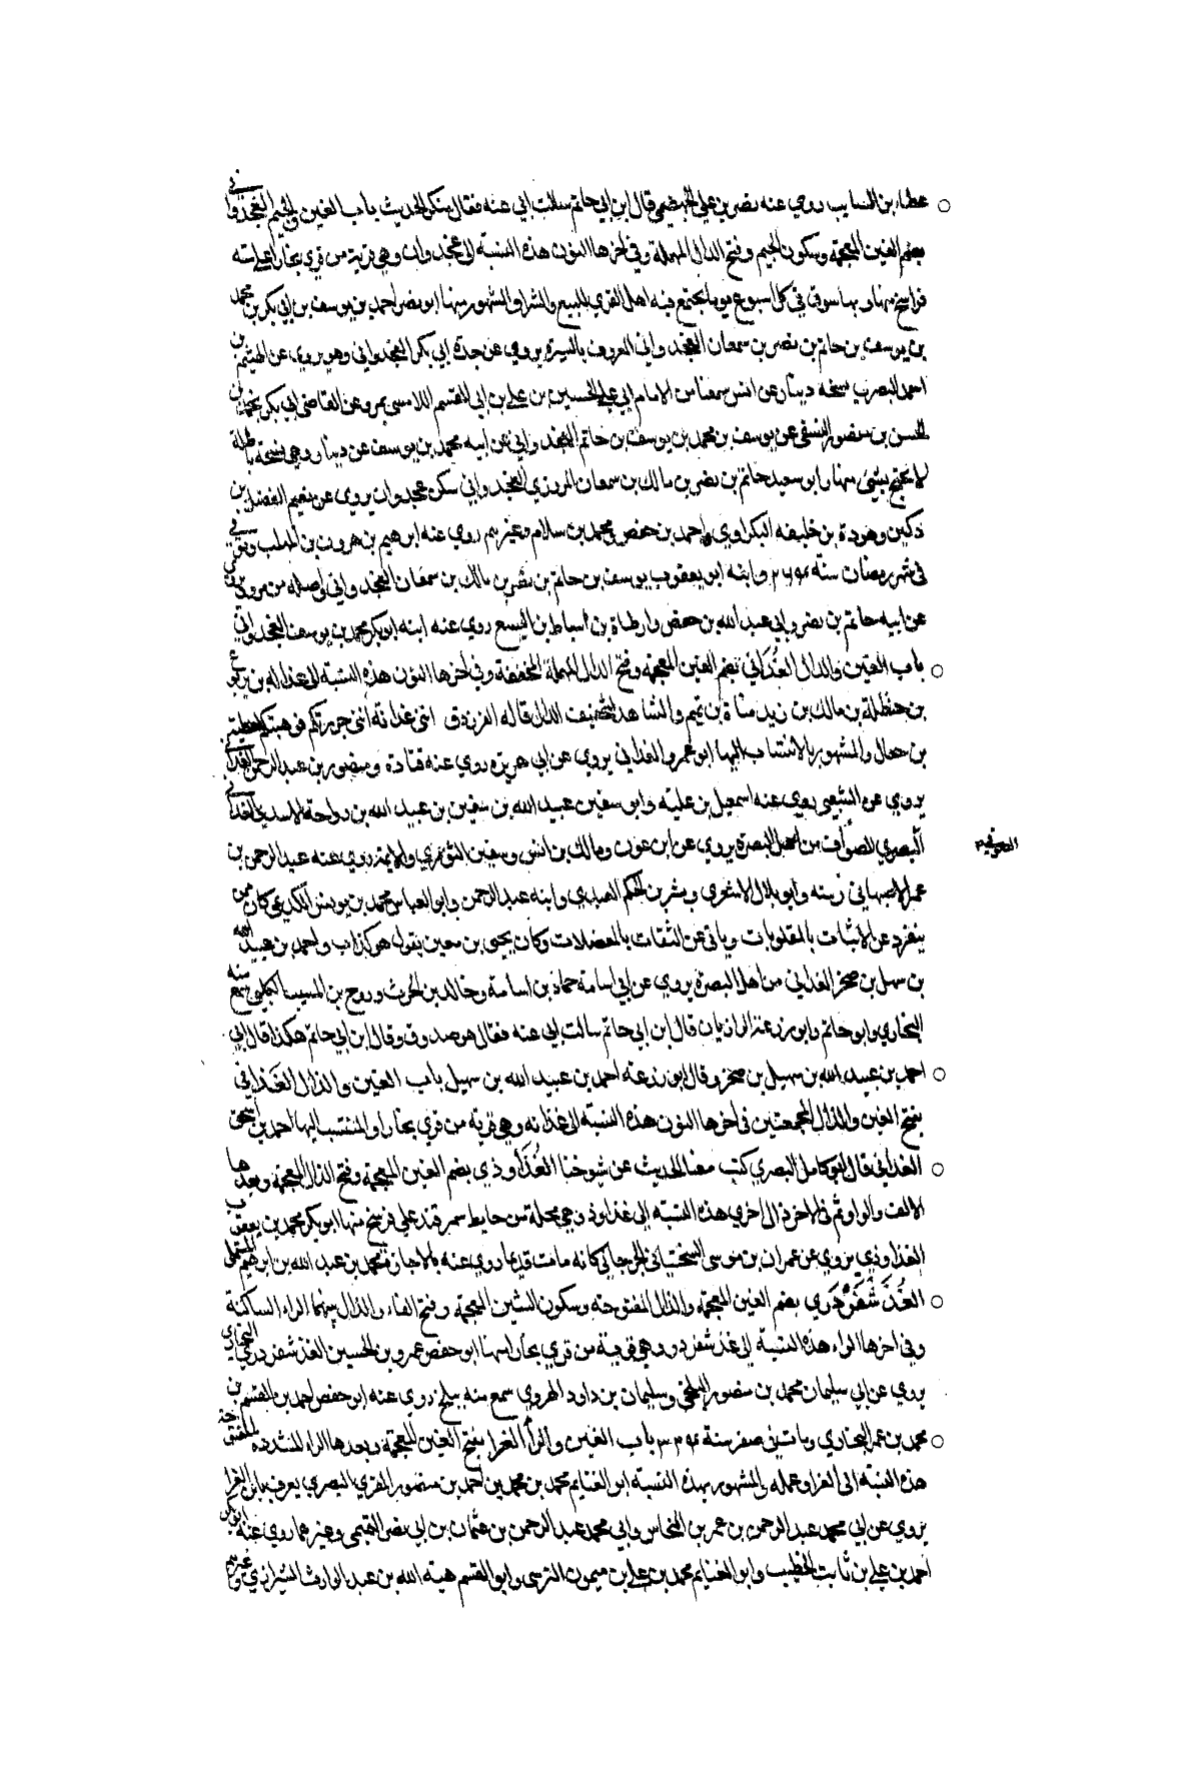 عطاء بن السايب روي عنه نصر بن علي الجهضمي قال ابن ابي حاتم سالت ابي عنه فقال منكر الحديث باب الغين والجيم الغجدواني
بضم الغين المعجمة وسكون الجيم وفتح الدال المهملة وفي اخرها النون هذه النسبة الى غجدوان وهي قرية من قري بخارا على ستة
فراسخ منها و بها سوق في كل اسبوع يوما يجتمع فيه اهل القري للبيع والشرا والمشهور منها ابو نصر احمد بن يوسف بن ابي بكر بن محمد
بن يوسف بن حاتم بن نصر بن سمعان الغجدواني المعروف بالسيرة يروي عن جده ابي بكر الغجدواني وهو يروي عن الهيثم بن
احمد البصري نسخة دينار عن انس سمعنا من الامام ابي علي الحسين بن علي بن ابي القسم اللامسي بمرو عن القاضي ابي بكر محمد بن
الحسن بن منصور النسفي عن يوسف بن محمد بن يوسف بن حاتم الغجدواني عن ابيه محمد بن يوسف عن دينار وهي نسخة باطلة
لا يحتج بشئ منها وابو سعيد حاتم بن نصر بن مالك بن سمعان المروزي الغجدواني سكن غجدوان يروي عن نعيم الفضل بن
دكين وهوذة بن خليفة البكراوي واحمد بن حفص ومحمد بن سلام وغيرهم روي عنه ابرهيم بن هرون بن المهلب وتوفي
في شهر رمضان سنة ٢٦٤ وابنه ابو يعقوب يوسف بن حاتم بن نصر بن مالك بن سمعان الغجدواني اصله من مرو يروي
عن ابيه حاتم بن نصر وابي عبد الله بن حفص وارطاة بن اسباط بن اليسع روي عنه ابنه ابو بكر محمد بن يوسف الغجدواني
باب الغين والدال الغداني بضم الغين المعجمة وفتح الدال المهملة المخففة وفي اخرها النون هذه النسبة الى غدانه بن يربوع
بن حنظلة بن مالك بن زيد مناة بن تميم والشاهد لتخفيف الدال قاله الفرزدق ابني غدانة انني حررتكم فوهبتكم لعطية
بن جعال والمشهور بالانتساب اليها ابو عمرو الغداني يروي عن ابي هريرة روي عنه قتادة ومنصور بن عبد الرحمن الغداني
يروي عن الشعبي روي عنه اسمعيل بن علية وابو سفين عبيد الله بن سفين بن عبيد الله بن رواحة الاسدي الغداني
البصري الصواف من اهل البصرة يروي عن ابن عون ومالك بن انس وسفين الثوري والايمة روي عنه عبد الرحمن بن
عمر الاصبهاني رسته وابو بلال الاشعري وبشر بن الحكم العبدي وابنه عبد الرحمن وابو العباس محمد بن يونس الكديمي كان ممن
ينفرد عن الاثبات بالمقلوبات وياتي عن الثقات بالمعضلات وكان يحيى بن معين يقول هو كذاب واحمد بن عبيد الله
بن سهل بن صخر الغداني من اهل البصرة يروي عن ابي اسامة حماد بن اسامة وخالد بن الحرث وروح بن المسيب الكليبي سمع منه
البخاري وابو حاتم وابو زرعة الرازيان قال ابن ابي حاتم سالت ابي عنه فقال هو صدوق وقال ابن ابي حاتم هكذا قال ابي
احمد بن عبيد الله بن سهيل بن صخر وقال ابو زرعة احمد بن عبيد الله بن سهيل باب الغين والذال الغذاني
بفتح الغين والذال المعجمتين في اخرها النون هذه النسبة الى غذانه وهي قرية من قري بخارا والمنتسب اليها احمد بن اسحق
الغذاني قال ابو كامل البصري كتب معنا الحديث عن شيوخنا الغذاوذي بضم الغين المعجمة وفتح الذال المعجمة وبعدها
الالف والواو ثم في الاخر ذال اخري هذه النسبة الى غذاوذ وهي محلة من حايط سمرقند على فرسخ منها ابو بكر محمد بن يعقوب
الغذاوذي يروي عن عمران بن موسى السختياني الجرجاني كانه مات قديما روي عنه بالاجازة محمد بن عبد الله بن ابرهيم المستملي
الغذشفردري بضم الغين المعجمة والذال المفتوحة وسكون الشين المعجمة وفتح الفاء والدال بينهما الراء الساكنة
وفي اخرها الراء هذه النسبة الى غذشفردر وهي قرية من قري بخارا منها ابو حفص عمرو بن الحسين الغذشفردري البخاري
يروي عن ابي سليمان محمد بن منصور البلخي وسليمان بن داود الهروي سمع منه ببلخ روي عنه ابو حفص احمد بن القسم بن
محمد بن عمر البخاري ومات في صفر سنة ٣٣٤ باب الغين والرا الغرا بفتح الغين المعجمة وبعدها الراء المشددة المفتوحة
هذه النسبة الى الغرا وعمله والمشهور بهذه النسبة ابو الغنايم محمد بن محمد بن احمد بن منصور المقري البصري يعرف بابن الغرا
يروي عن ابي محمد عبد الرحمن بن عمر بن النحاس وابي محمد عبد الرحمن بن عثمان بن ابي نصر التميمي وغيرهما روي عنه ابو بكر
احمد بن علي بن ثابت الخطيب وابو الغنايم محمد بن علي بن ميمون النرسي وابو القسم هبة الله بن عبد الوارث الشيرازي وغيرهم